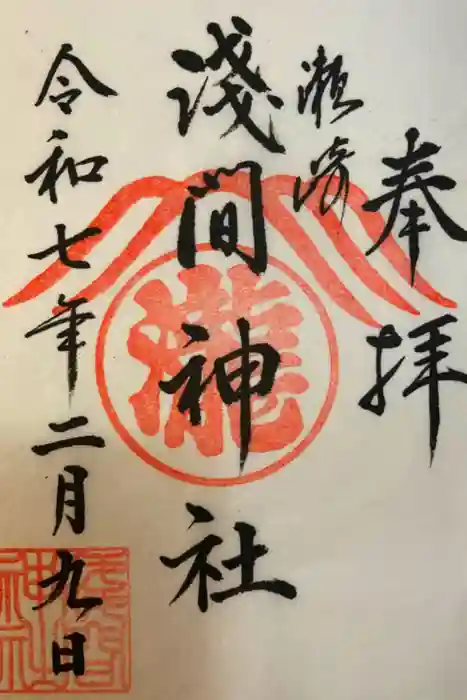 奉拝
瀬崎
淺間神社
瀧
令和七年二月九日